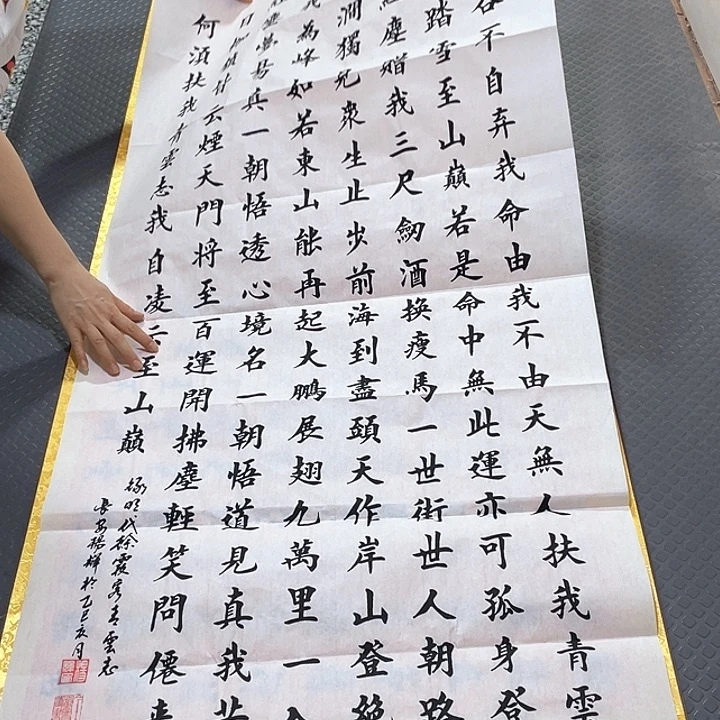 不自弃我命由我不由天無人扶我青雲
踏雪至山巔若是命中無此運亦可孤身登
塵贈我三尺劍酒換瘦馬一世街世人朝路
澗獨兒衆生止步前海到盡頭天作岸山登絕
為峰如若東山能再起大鵬展翅九萬里一
真一朝悟透心境名一朝悟道見真我若
日枷鎖皆云煙天門将至百運開拂塵輕笑問僊
何須扶我青雲志我自凌云至山巔
錄明代徐霞客青雲志
長安揚輝於乙巳亥月